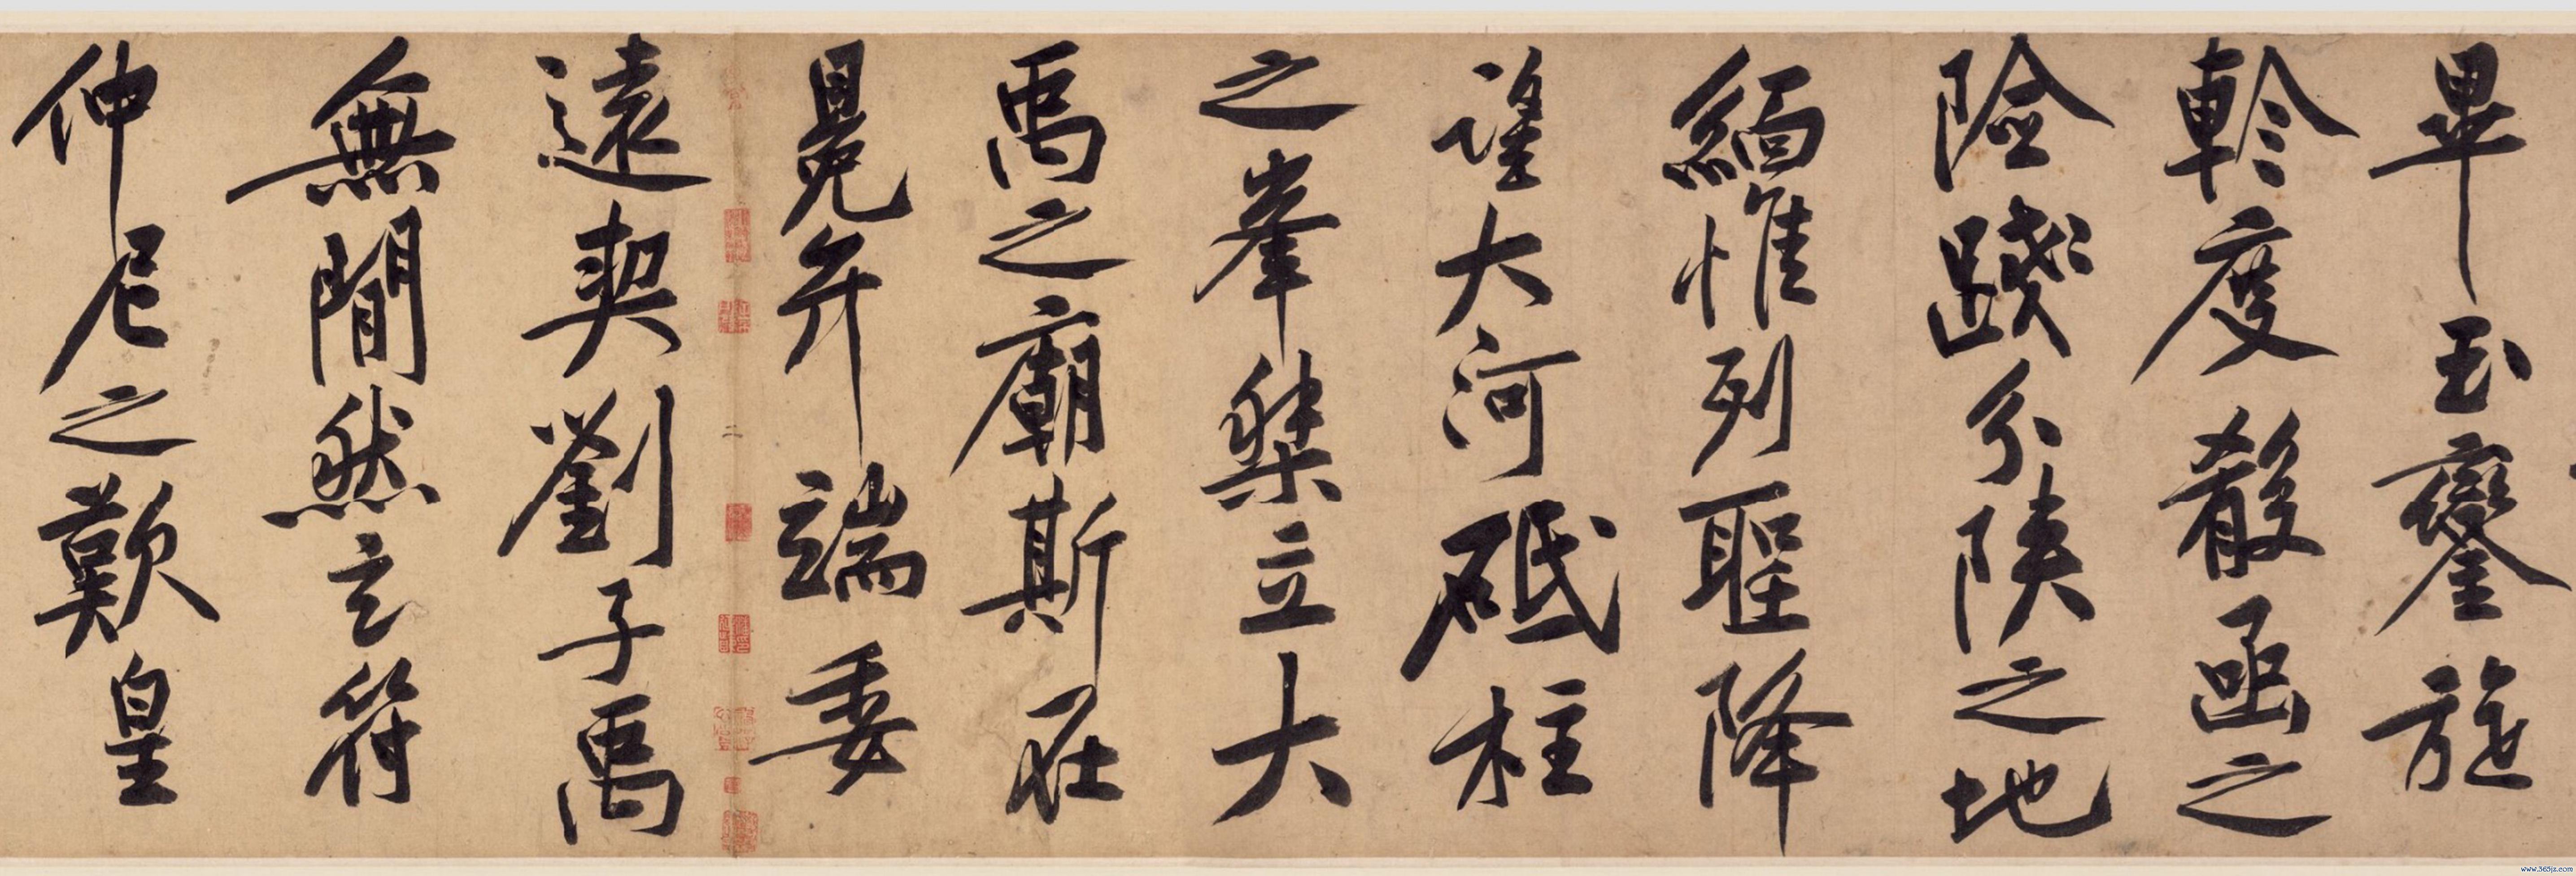 畢玉鑾旋
軫度殽函之
險踐分陝之地
緬惟列聖降
望大河砥柱
之峯桀立大
禹之廟斯在
冕弁端委
二
遠契劉子禹
無閒然玄符
仲尼之歎皇
www.365jz.com